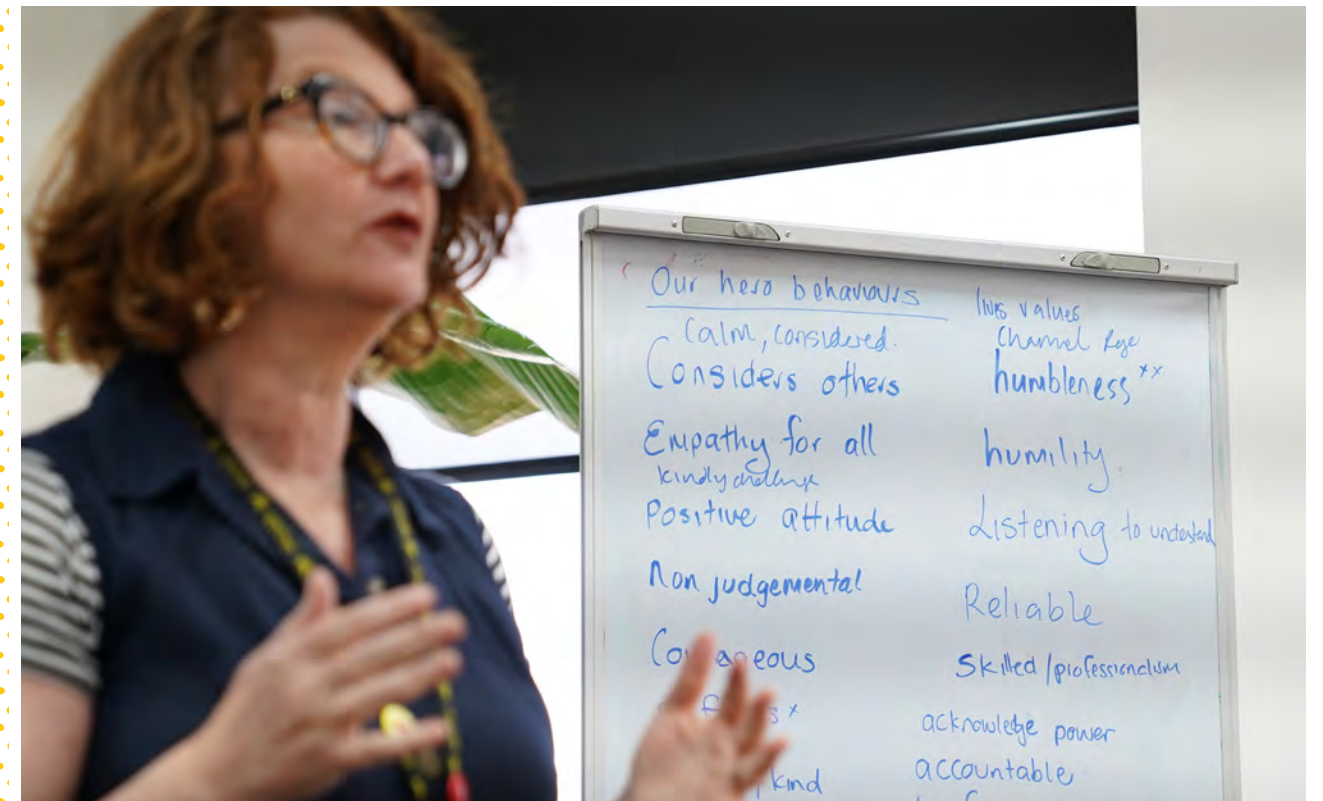 Our hero behaviours
Calm, considered.
Considers others
Empathy for all
kindly challenge
Positive attitude
Non judgemental
kind
lives values
Channel
humbleness xx
humility.
Listening to understand
Reliable
Skilled/professionalism
acknowledge power
accountable